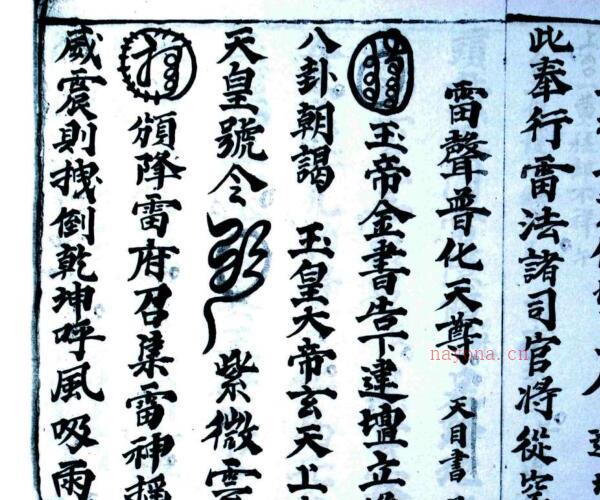 此奉行雷法諸司官将從
雷聲普化天尊 天目書
玉帝金書告下建壇立
八卦朝謁 玉皇大帝玄天上
天皇號令 紫微
頒降雷府召集雷神
威震則拽倒乾坤呼風吸雨
nayona.cn